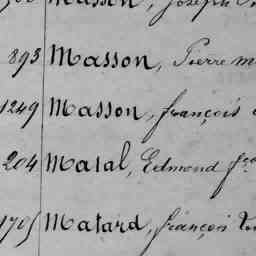 Masson, Joseph
893 Masson, Pierre m
1249 Masson, françois
204 Matal, Edmond
1705 Matard, françois